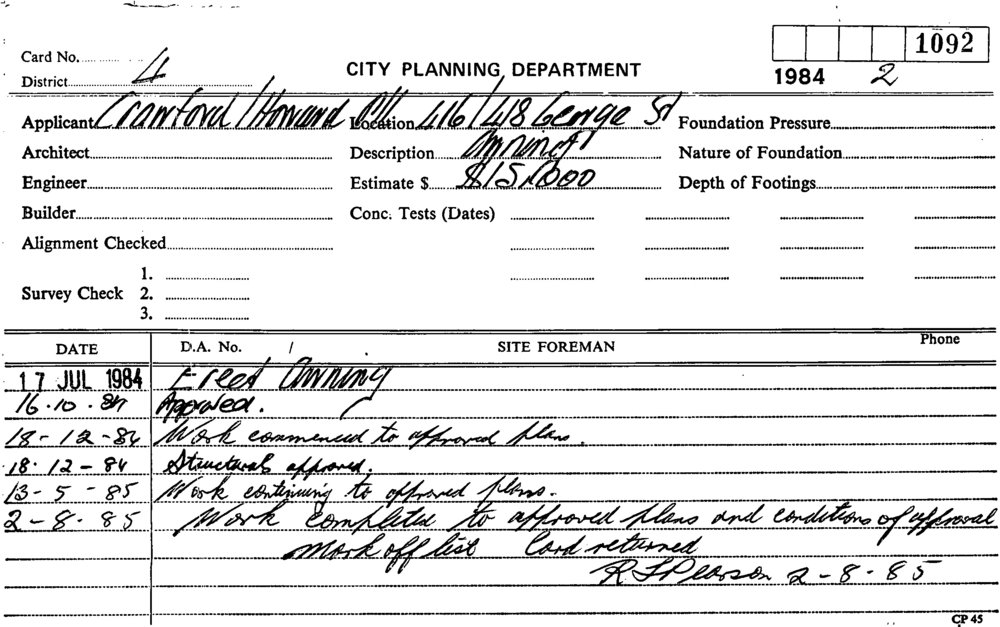 1092
Card No.
CITY PLANNING DEPARTMENT
1984 2
District 4
Applicant Crawford / Howard P/L Location 416/418 George St Foundation Pressure
Architect Description Awning Nature of Foundation
Engineer Estimate $ $15,000 Depth of Footings
Builder Conc. Tests (Dates)
Alignment Checked
1.
Survey Check 2.
3.
DATE D.A. No. / SITE FOREMAN Phone
17 JUL 1984 Erect Awning
16.10.84 Approved.
18-12-84 Work commenced to approved plans.
18.12-84 Structural approved.
13-5-85 Work continuing to approved plans.
2-8.85 Work completed to approved plans and conditions of approval
Mark off list Card returned
R Pearson 2-8-85
CP 45